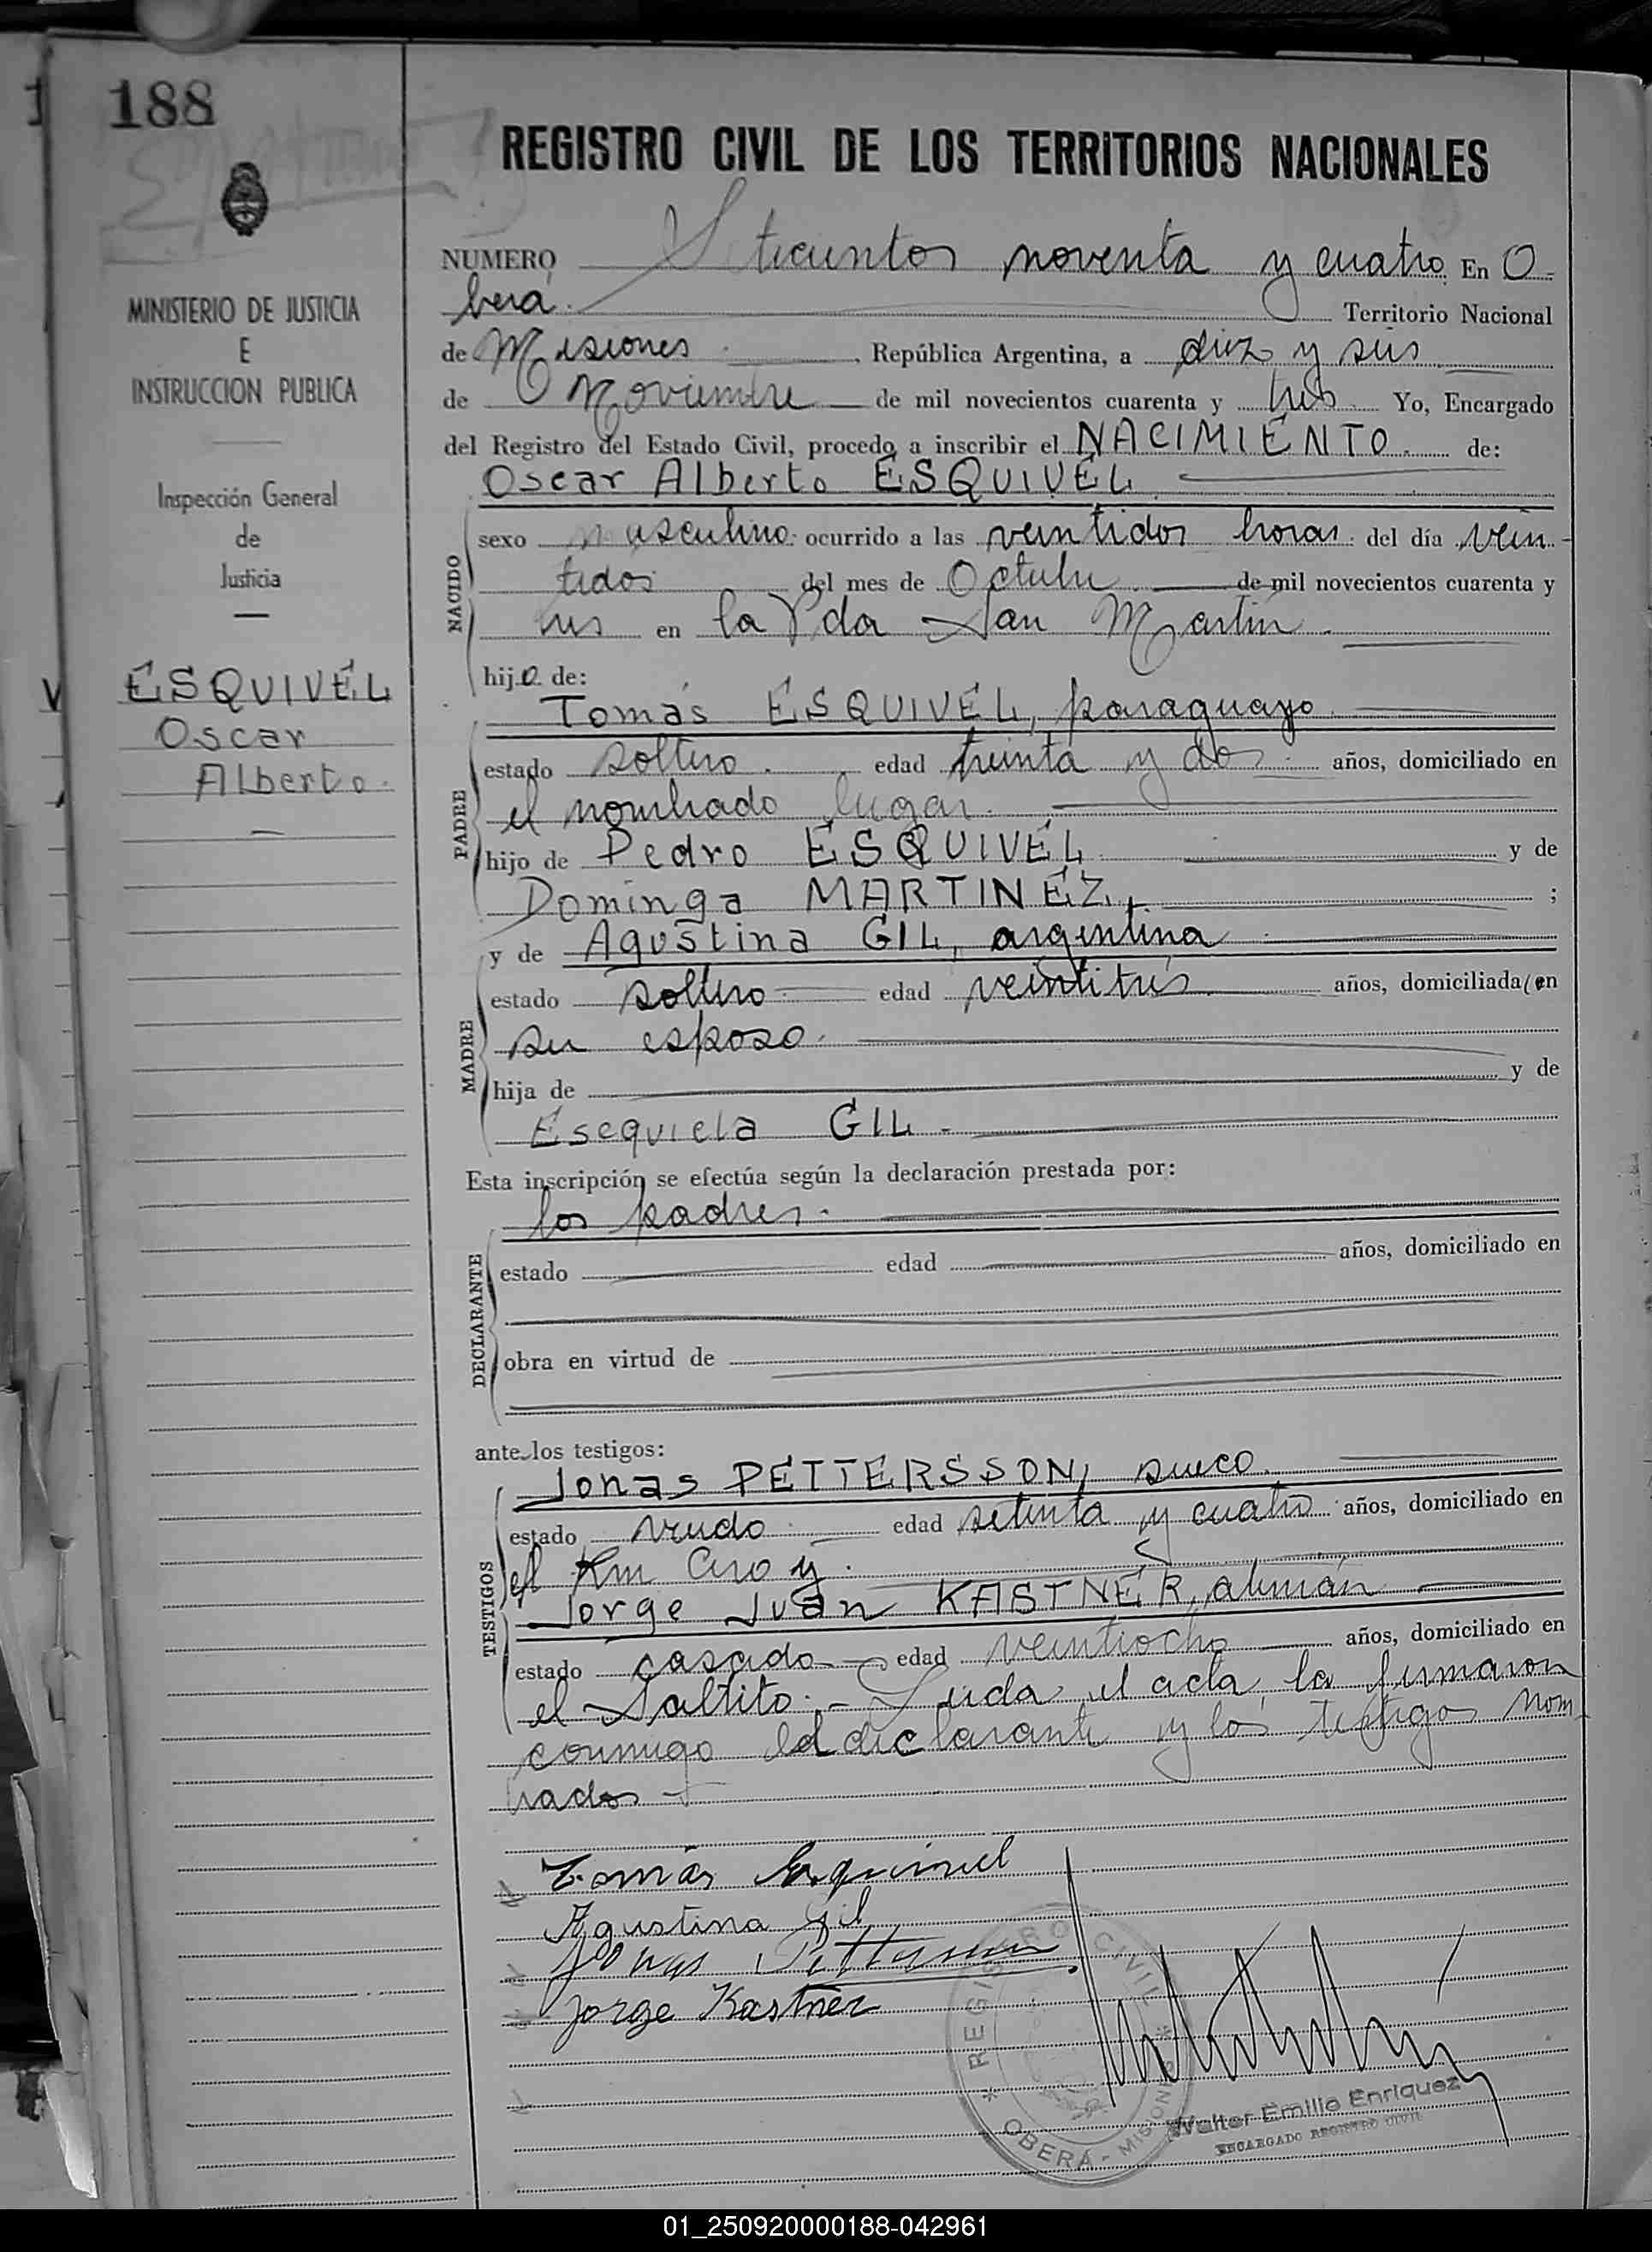 188
REGISTRO CIVIL DE LOS TERRITORIOS NACIONALES
MINISTERIO DE JUSTICIA
E
INSTRUCCION PUBLICA
Inspección General
de
Justicia
ESQUIVEL
Oscar
Alberto.
NUMERO Setecientos noventa y cuatro. En O-
berá. Territorio Nacional
de Misiones República Argentina, a diez y seis
de Noviembre de mil novecientos cuarenta y tres Yo, Encargado
del Registro del Estado Civil, procedo a inscribir el NACIMIENTO. de:
Oscar Alberto ESQUIVEL
NACIDO
sexo masculino ocurrido a las veintidos horas del día vein-
tidos del mes de Octubre de mil novecientos cuarenta y
tres en la Pda San Martín.
hijo de:
PADRE
Tomás ESQUIVEL, paraguayo
estado soltero. edad treinta y dos años, domiciliado en
el nombrado lugar.
hijo de Pedro ESQUIVEL y de
Dominga MARTINEZ, ;
y de Agustina GIL, argentina
MADRE
estado soltero edad veintitres años, domiciliada en
su esposo.
hija de y de
Esequiela GIL.
Esta inscripción se efectúa según la declaración prestada por:
los padres.
DECLARANTE
estado edad años, domiciliado en
obra en virtud de
ante los testigos:
TESTIGOS
Jonas PETTERSSON, sueco.
estado viudo edad setenta y cuatro años, domiciliado en
el Km Cero y.
Jorge Juan KASTNER, alemán
estado casado edad veintiocho años, domiciliado en
el Saltito.- Leida el acta, la firmaron
conmigo el declarante y los testigos nom-
brados
Tomás Esquivel
Agustina Gil
Jonas Pettersson
Jorge Kastner
REGISTRO CIVIL
* OBERÁ - MISIONES *
Walter Emilio Enriquez
ENCARGADO REGISTRO CIVIL
01_250920000188-042961